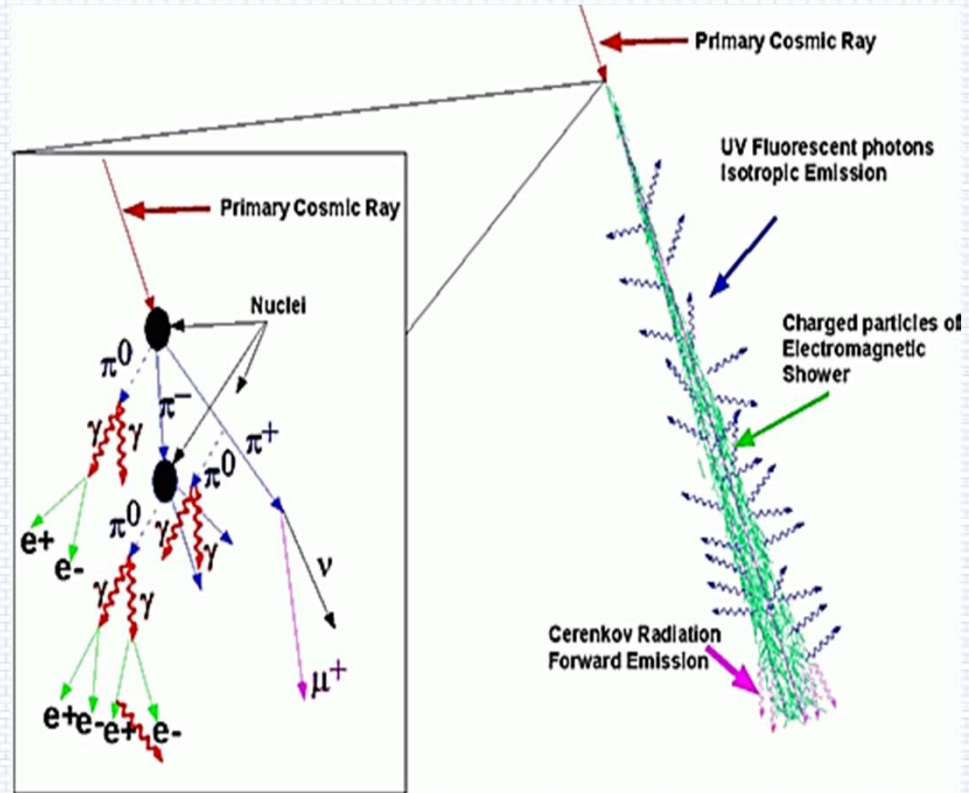 Primary Cosmic Ray
UV Fluorescent photons
Isotropic Emission
Charged particles of
Electromagnetic
Shower
Cerenkov Radiation
Forward Emission
Primary Cosmic Ray
Nuclei
π0
π−
π+
γ γ
π0
π0
γ γ
e+
e-
γ γ
ν
μ+
e+ e- e+ e-